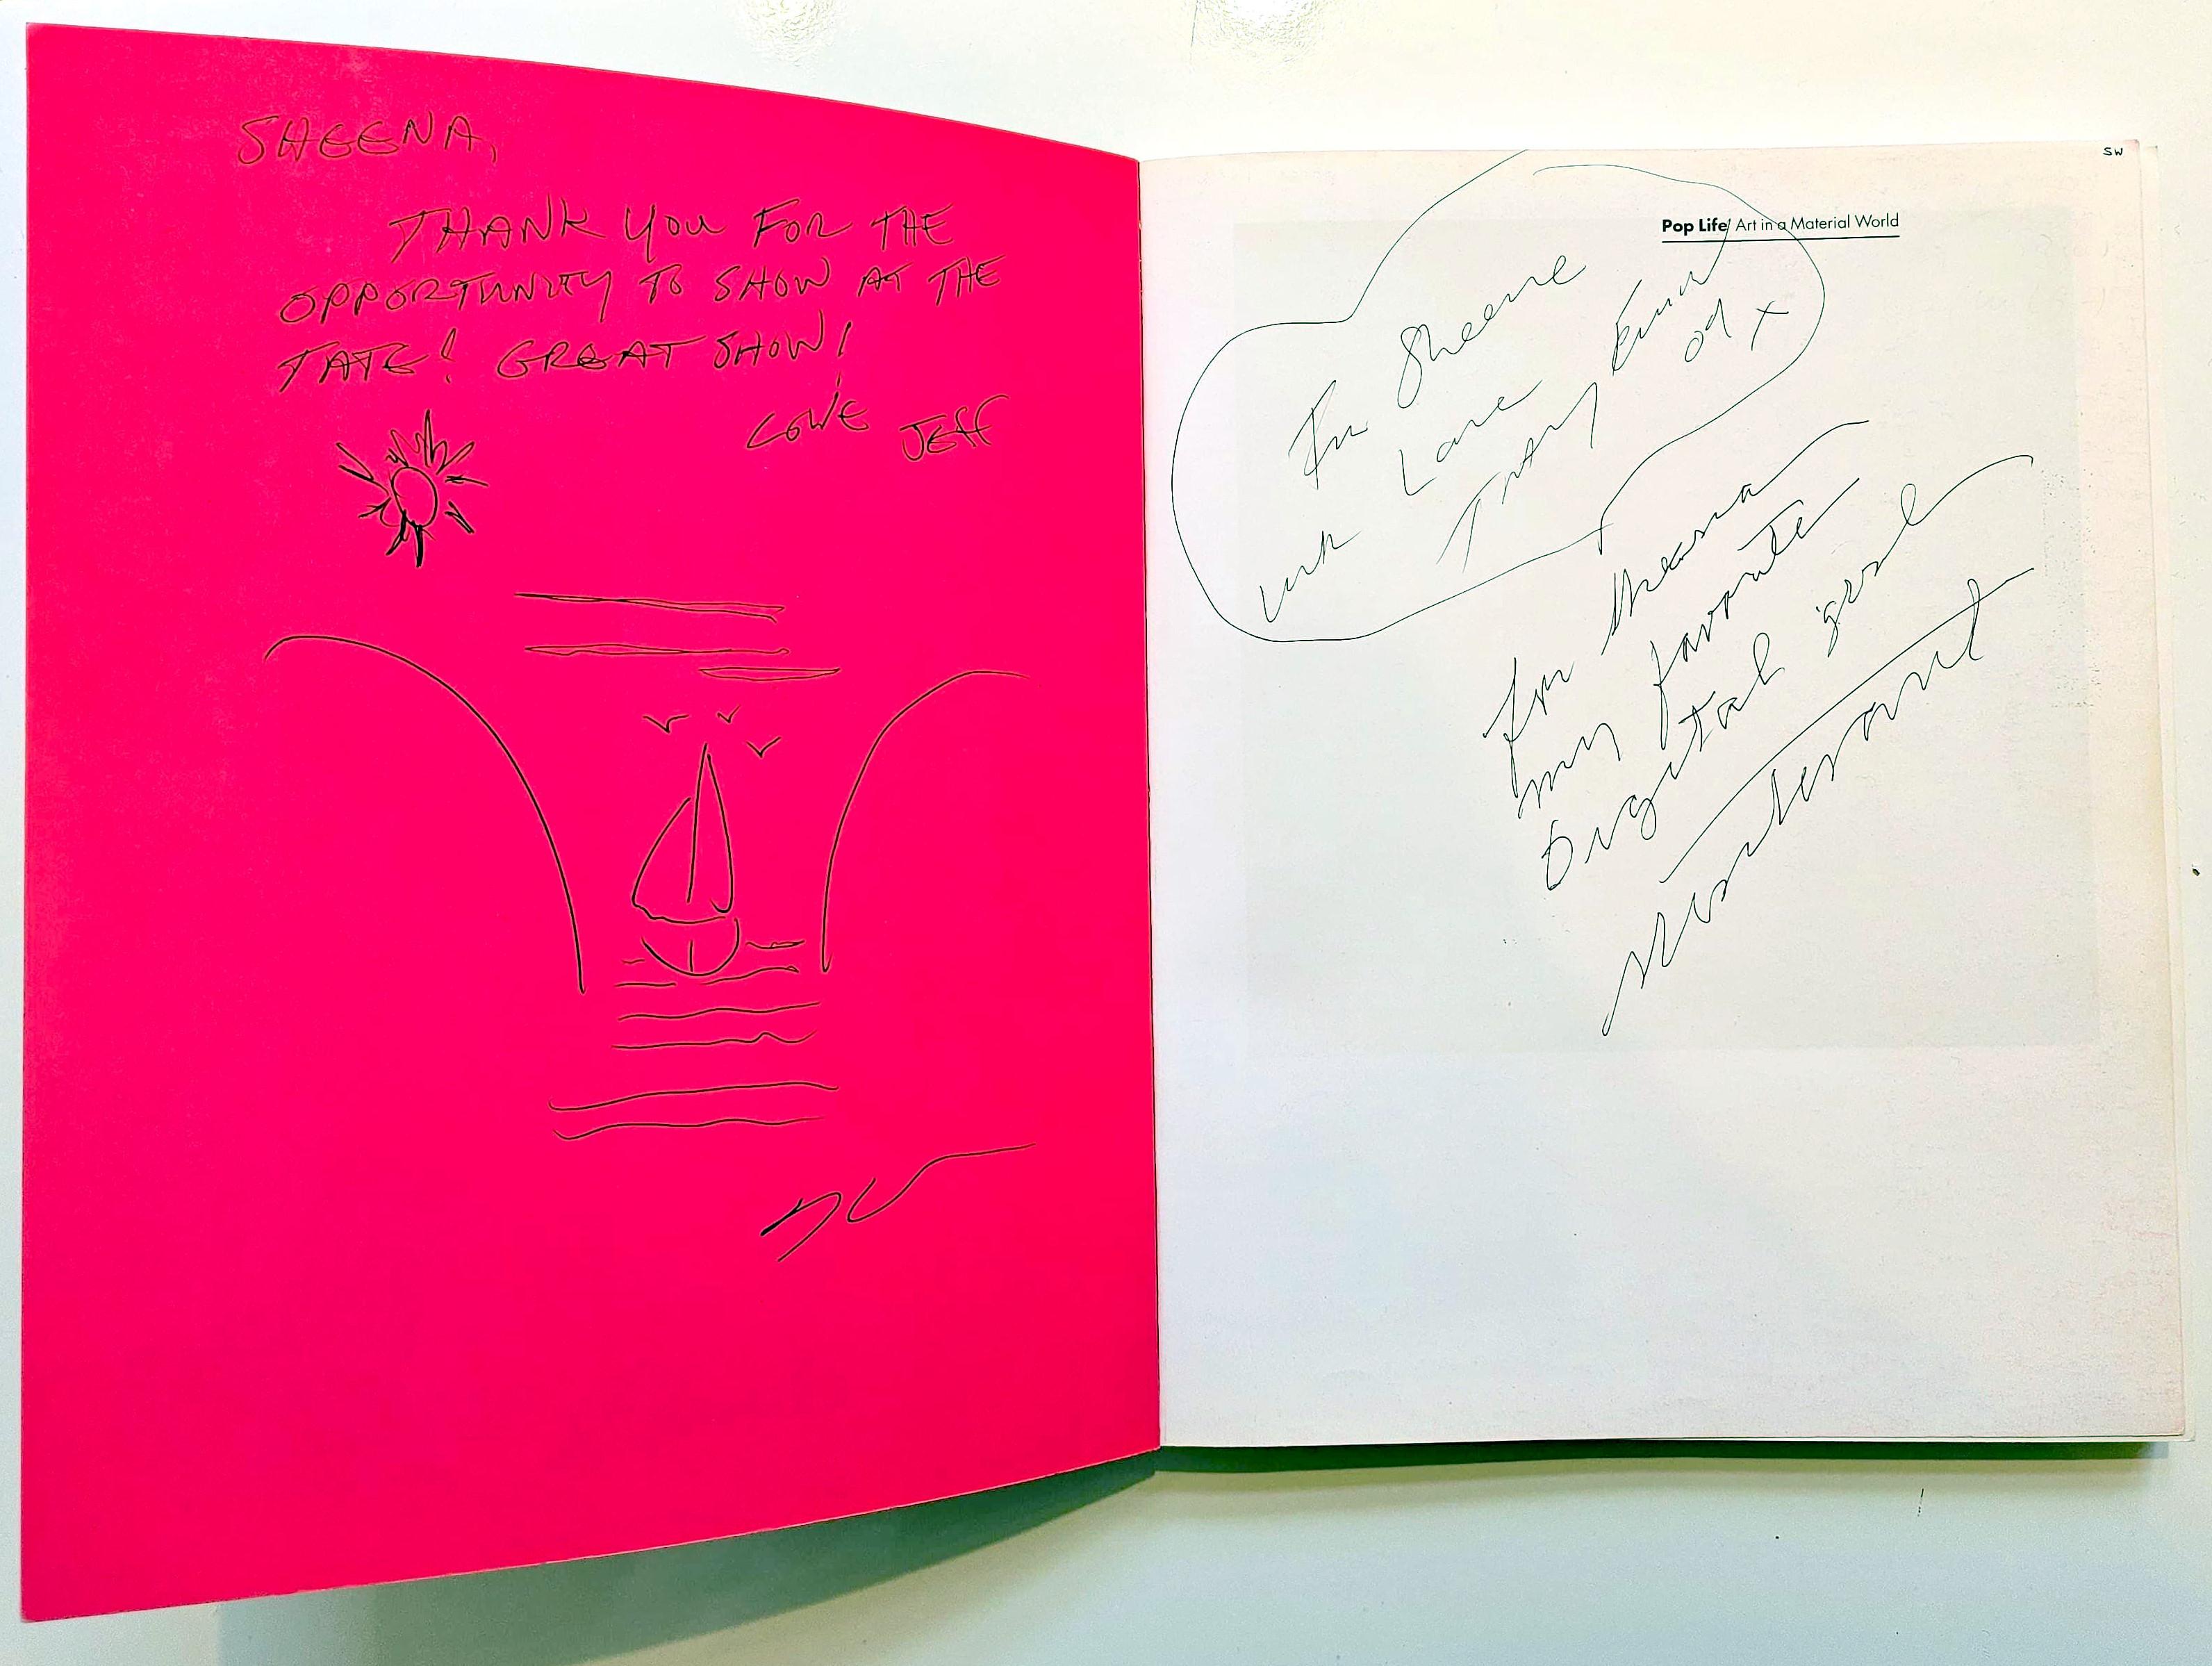 SHEENA,
THANK YOU FOR THE
OPPORTUNITY TO SHOW AT THE
TATE! GREAT SHOW!
LOVE JEFF
SW
Pop Life/ Art in a Material World
For Sheena
Love
with Tracey Emin
x
for Sheena
my favorite
Digital girl